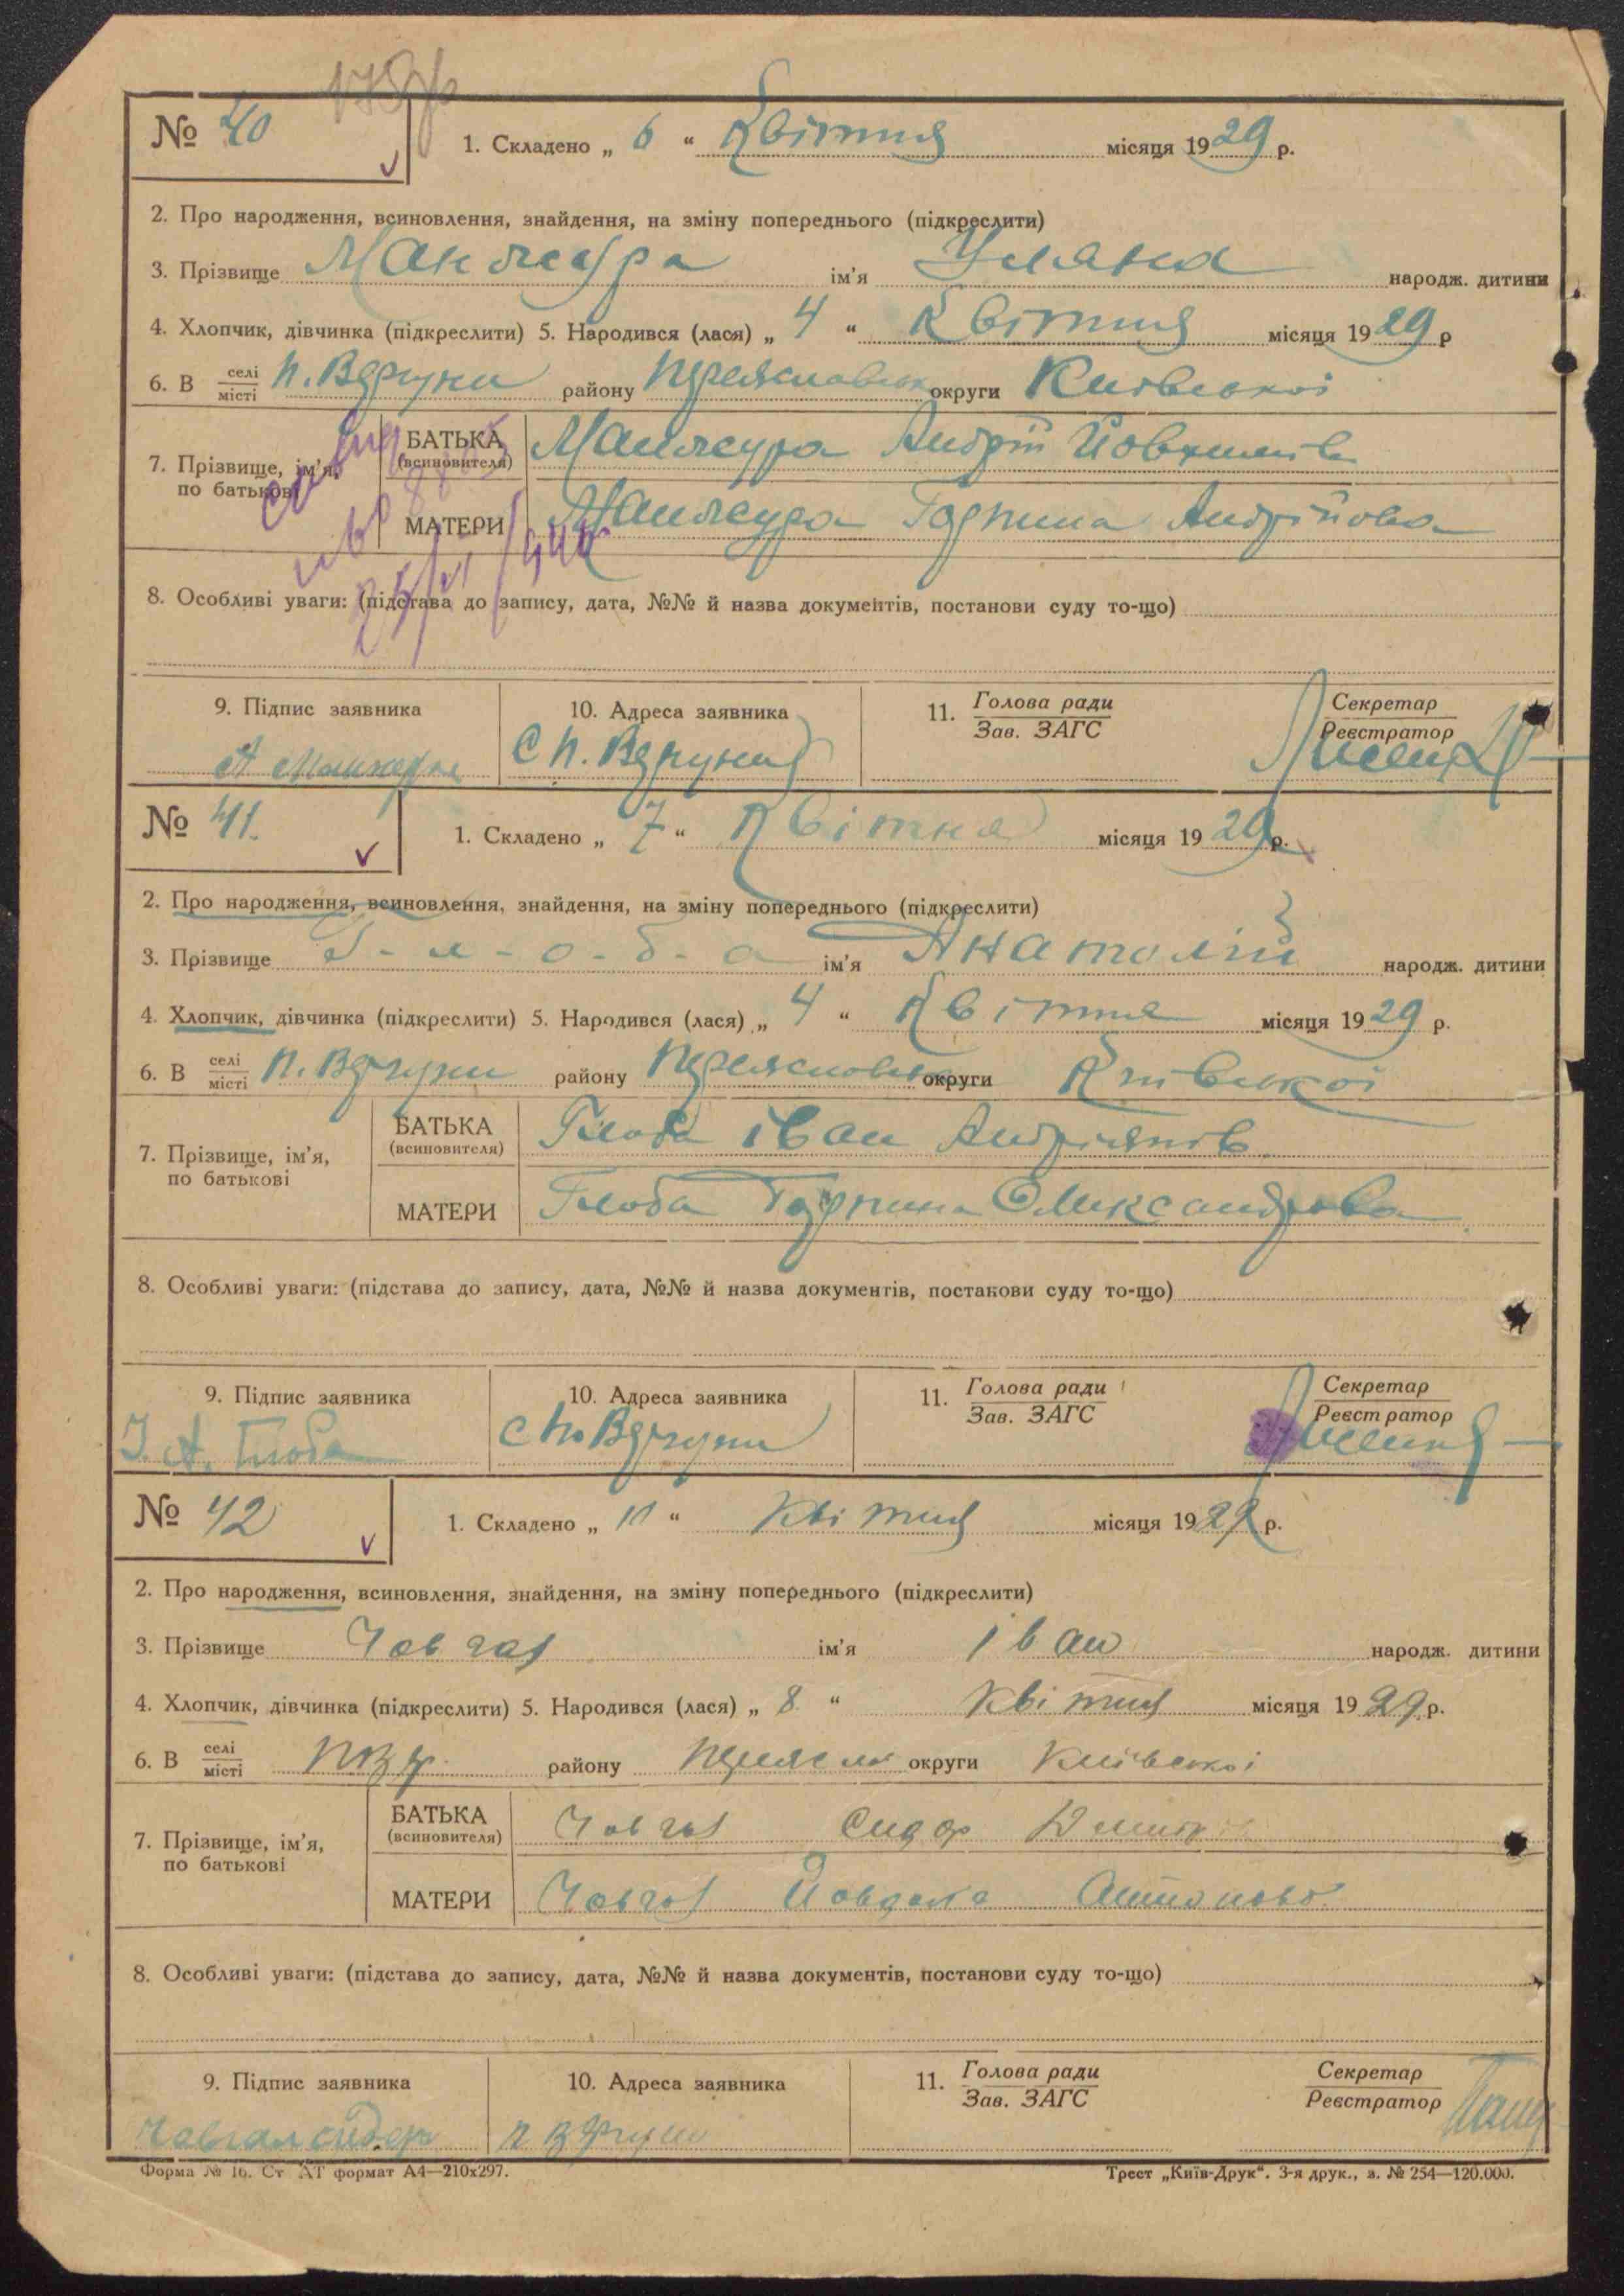 № 40
1. Складено „ 6 “ Квітня місяця 1929 р.
2. Про народження, всиновлення, знайдення, на зміну попереднього (підкреслити)
3. Прізвище Манжура ім'я Уляна народж. дитини
4. Хлопчик, дівчинка (підкреслити) 5. Народився (лася) „ 4 “ Квітня місяця 1929 р
6. В селі/місті П. Вергуни району Переяславськ округи Київської
7. Прізвище, ім'я, по батькові
БАТЬКА (всиновителя) Манжура Андрій Йовхимів
МАТЕРИ Манжура Горпина Андрійова
8. Особливі уваги: (підстава до запису, дата, №№ й назва документів, постанови суду то-що)
9. Підпис заявника 10. Адреса заявника 11. Голова ради Зав. ЗАГС Секретар Реєстратор
А Манжура С П. Вергуни
№ 41.
1. Складено „ 7 “ Квітня місяця 1929 р.
2. Про народження, всиновлення, знайдення, на зміну попереднього (підкреслити)
3. Прізвище Г-л-о-б-а ім'я Анатолій народж. дитини
4. Хлопчик, дівчинка (підкреслити) 5. Народився (лася) „ 4 “ Квітня місяця 1929 р.
6. В селі/місті П. Вергуни району Переяславськ округи Київської
7. Прізвище, ім'я, по батькові
БАТЬКА (всиновителя) Глоба Іван Андріянів
МАТЕРИ Глоба Горпина Олександрова
8. Особливі уваги: (підстава до запису, дата, №№ й назва документів, постанови суду то-що)
9. Підпис заявника 10. Адреса заявника 11. Голова ради Зав. ЗАГС Секретар Реєстратор
І. А. Глоба с По Вергуни
№ 42
1. Складено „ 11 “ Квітня місяця 1929 р.
2. Про народження, всиновлення, знайдення, на зміну попереднього (підкреслити)
3. Прізвище Човгал ім'я Іван народж. дитини
4. Хлопчик, дівчинка (підкреслити) 5. Народився (лася) „ 8 “ Квітня місяця 1929 р.
6. В селі/місті ПВер району Переясла округи Київської
7. Прізвище, ім'я, по батькові
БАТЬКА (всиновителя) Човгал Сидор
МАТЕРИ Човгал Йовдоха Антонова
8. Особливі уваги: (підстава до запису, дата, №№ й назва документів, постанови суду то-що)
9. Підпис заявника 10. Адреса заявника 11. Голова ради Зав. ЗАГС Секретар Реєстратор
Човгал сидор п Вергуни
Форма № 16. Ст АТ формат А4—210х297. Трест „Київ-Друк“. 3-я друк., з. № 254—120.000.